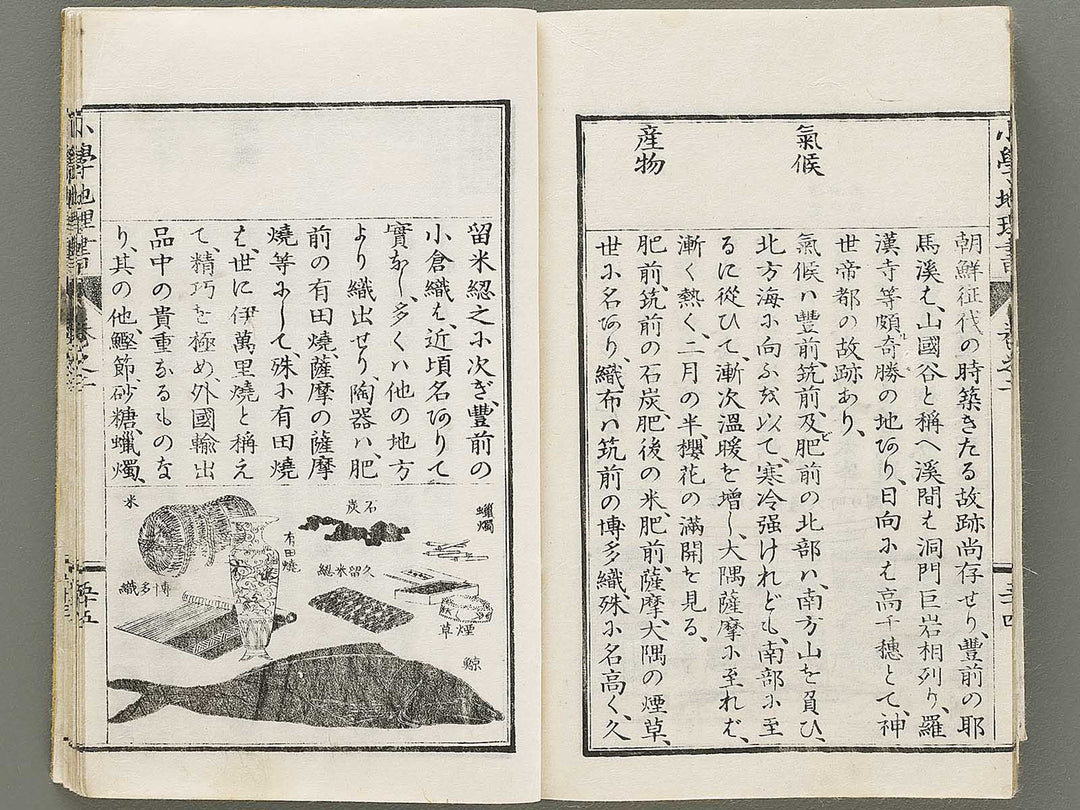 小學地理書
氣候
産物
朝鮮征伐の時築きたる故跡尚存せり、豐前の耶
馬溪は、山國谷と稱へ溪間は洞門巨岩相列り、羅
漢寺等頗奇勝の地あり、日向には高千穗とて、神
世帝都の故跡あり、
氣候ハ豐前、筑前及肥前の北部ハ、南方山を負ひ、
北方海に向ふを以て、寒冷强けれども、南部に至
るに從ひて、漸次溫暖を增し、大隅薩摩に至れば、
漸く熱く、二月の半、櫻花の滿開を見る、
肥前、筑前の石炭、肥後の米、肥前、薩摩、大隅の煙草、
世に名あり、織布ハ筑前の博多織殊に名高く、久
留米綛之に次ぎ、豐前の
小倉織は、近頃名ありて
實なし、多くハ他の地方
より織出せり、陶器ハ、肥
前の有田燒、薩摩の薩摩
燒等にして、殊に有田燒
は、世に伊萬里燒と稱え
て、精巧を極め、外國輸出
品中の貴重なるものな
り、其の他、鰹節、砂糖、蠟燭、
蠟燭
石炭
米
有田燒
久留米綛
博多織
煙草
鯨
小學地理書
五十五